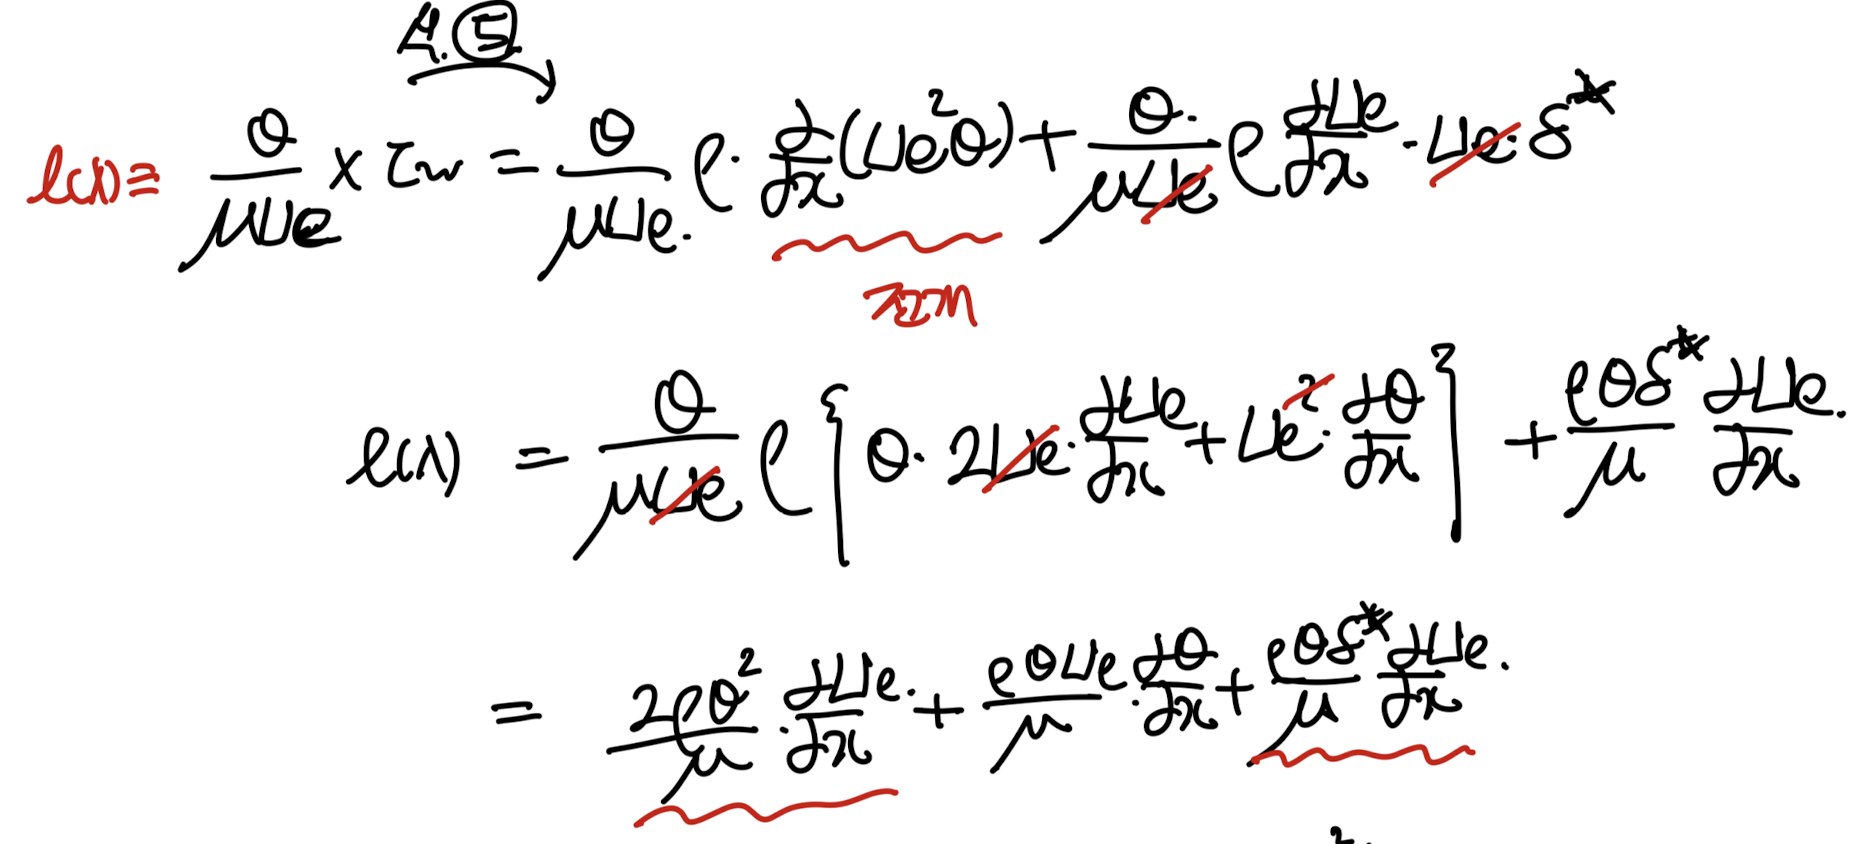 식.⑤
l(λ) ≡ θ/(μUe) × τw = θ/(μUe) ρ · d/dx (Ue²θ) + θ/(μUe) ρ dUe/dx · Ue · δ*
전개
l(λ) = θ/(μUe) ρ { θ · 2Ue · dUe/dx + Ue² · dθ/dx } + ρθδ*/μ dUe/dx
= 2ρθ²/μ · dUe/dx + ρθUe/μ · dθ/dx + ρθδ*/μ dUe/dx
2